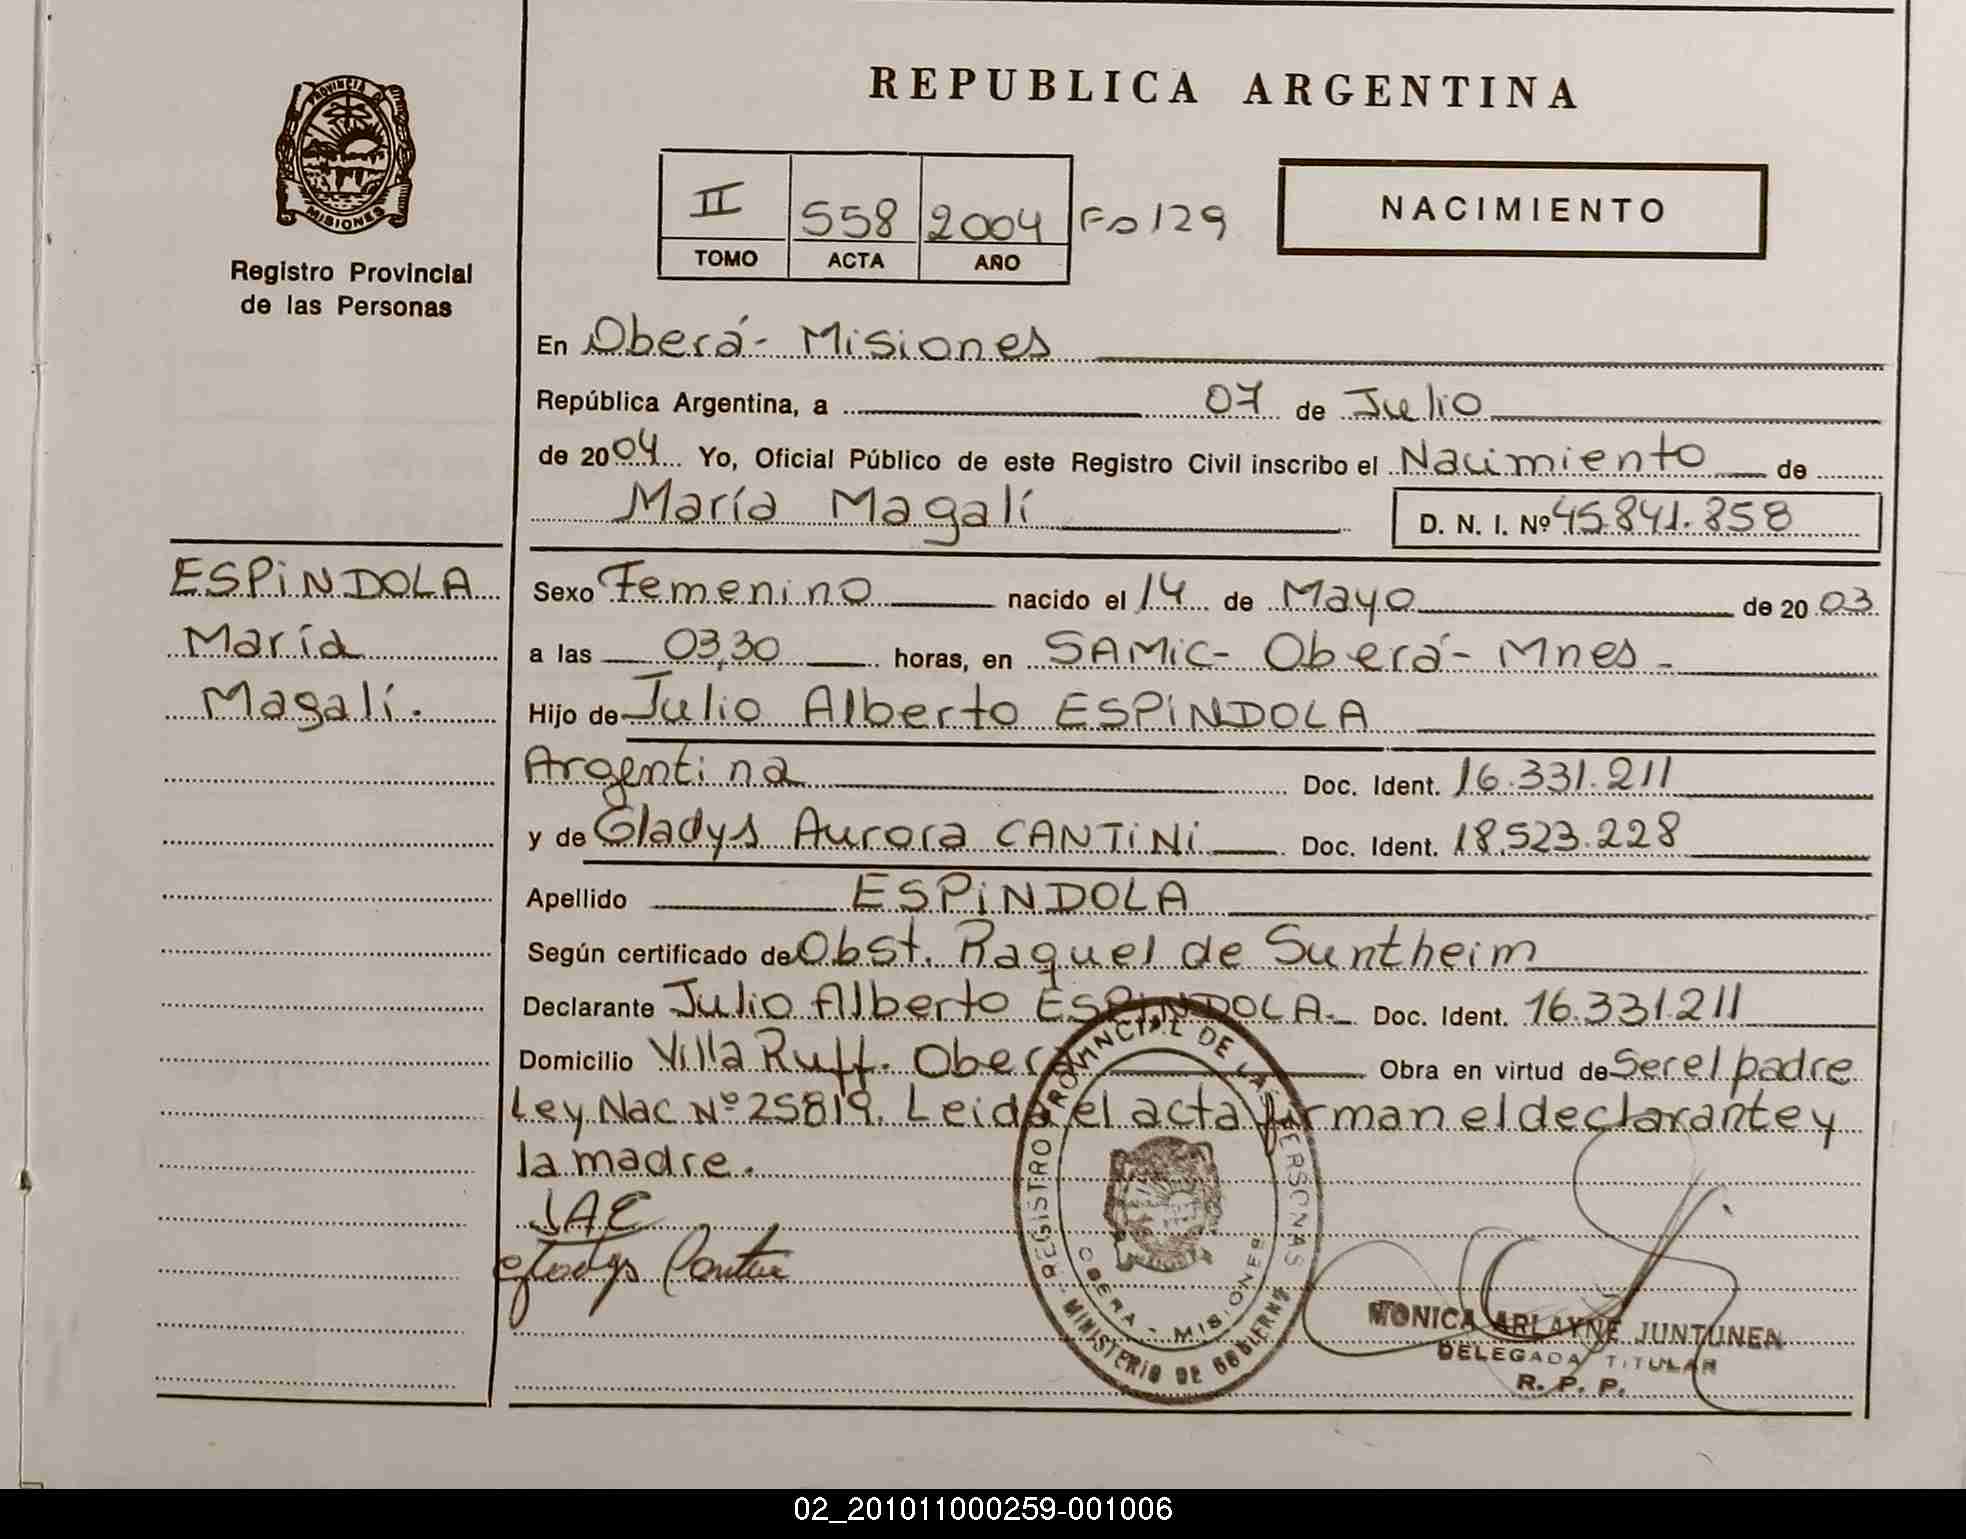 REPUBLICA ARGENTINA
PROVINCIA D
MISIONES
Registro Provincial
de las Personas
II 558 2004 Fo 129
TOMO ACTA AÑO
NACIMIENTO
En Oberá - Misiones
República Argentina, a 07 de Julio
de 2004 Yo, Oficial Público de este Registro Civil inscribo el Nacimiento de
María Magalí D. N. I. Nº 45.841.858
ESPINDOLA
María
Magalí.
Sexo Femenino nacido el 14 de Mayo de 20 03
a las 03,30 horas, en SAMIC - Oberá - Mnes -
Hijo de Julio Alberto ESPINDOLA
Argentina Doc. Ident. 16.331.211
y de Gladys Aurora CANTINI Doc. Ident. 18.523.228
Apellido ESPINDOLA
Según certificado de Obst. Raquel de Suntheim
Declarante Julio Alberto ESPINDOLA. Doc. Ident. 16.331.211
Domicilio Villa Ruff. Oberá Obra en virtud de Ser el padre
Ley Nac Nº 25819. Leida el acta firman el declarante y
la madre.
JAE
Gladys Cantini
REGISTRO PROVINCIAL DE LAS PERSONAS
OBERA - MISIONES
MINISTERIO DE GOBIERNO
MONICA ARLAYNE JUNTUNEN
DELEGADA TITULAR
R. P. P.
02_201011000259-001006